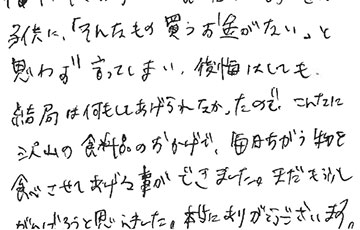 子供に、「そんなもの買うお金がない」と
思わず言ってしまい、後悔はしても、
結局は何もしてあげられなかったので、こんなに
沢山の食料品のおかげで、毎日ちがう物を
食べさせてあげる事ができました。まだもう少し
がんばろうと思いました。本当にありがとうございます。